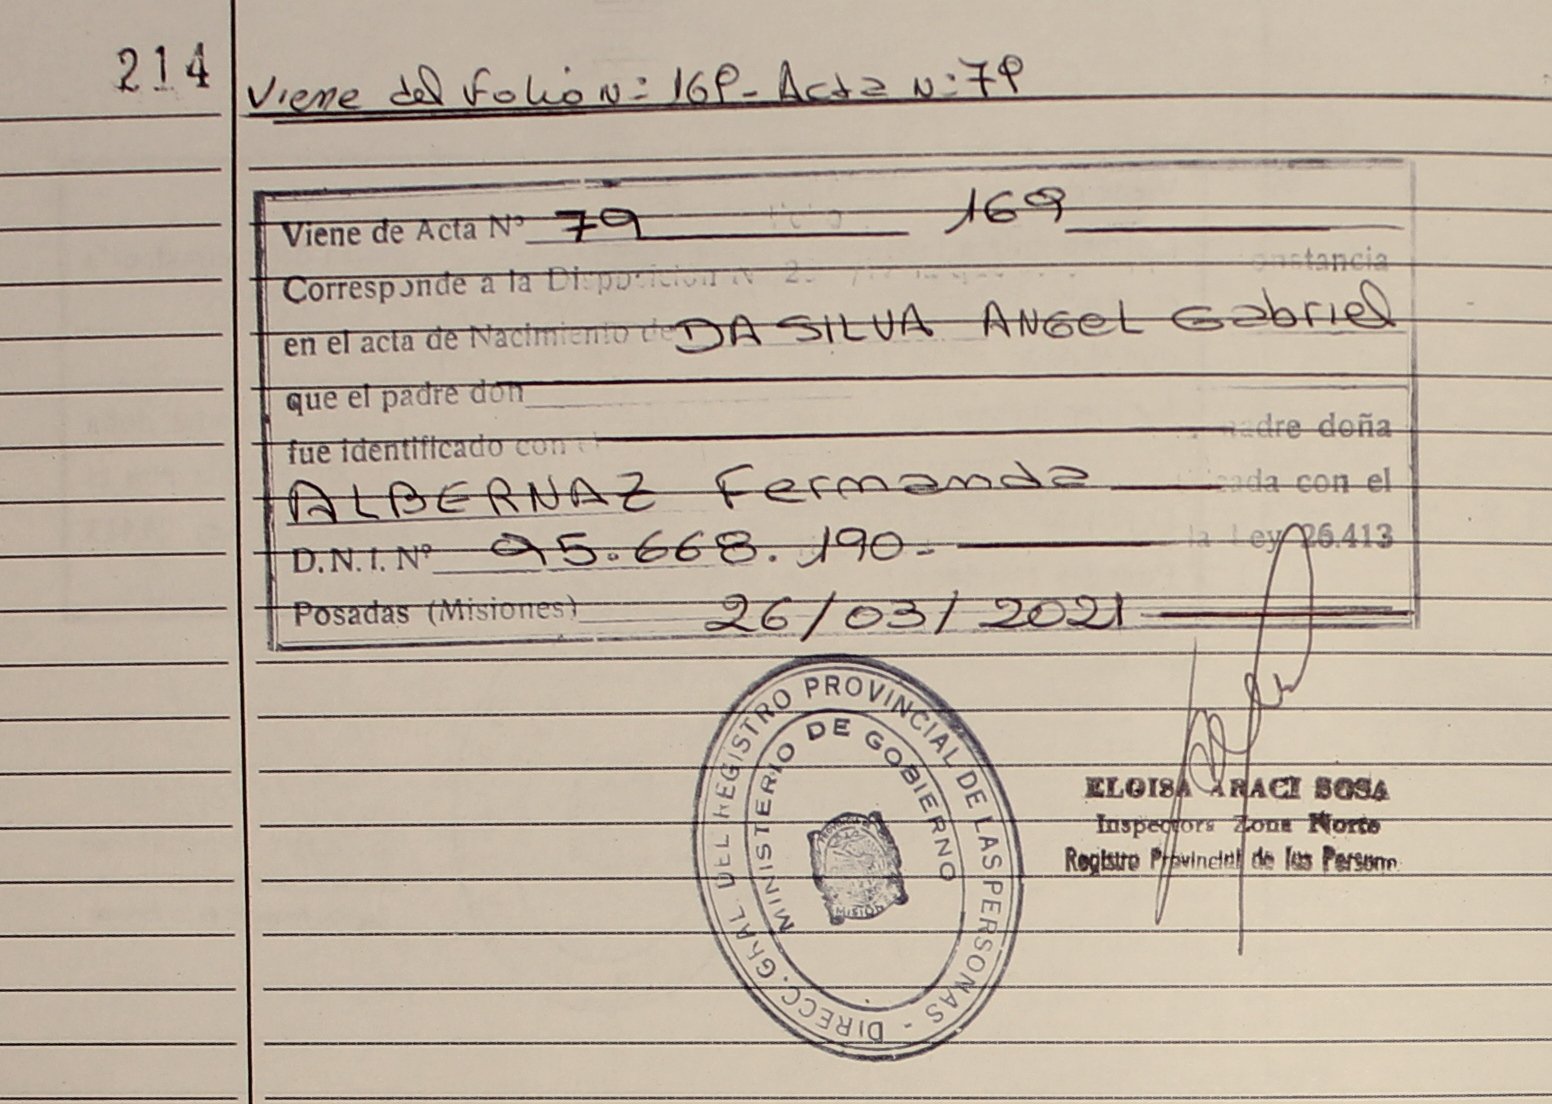 214
Viene del Folio N: 169- Acta N: 79
Viene de Acta Nº 79 169
Corresponde a la Disposicion N constancia
en el acta de Nacimiento de DA SILVA ANGEL Gabriel
que el padre don
fue identificado con madre doña
ALBERNAZ Fernanda con el
D.N.I. Nº 95.668.190.- la Ley 26.413
Posadas (Misiones) 26/03/2021
DIRECC. GRAL DEL REGISTRO PROVINCIAL DE LAS PERSONAS -
MINISTERIO DE GOBIERNO
ELOISA ARACI SOSA
Inspectora Zona Norte
Registro Provincial de las Person